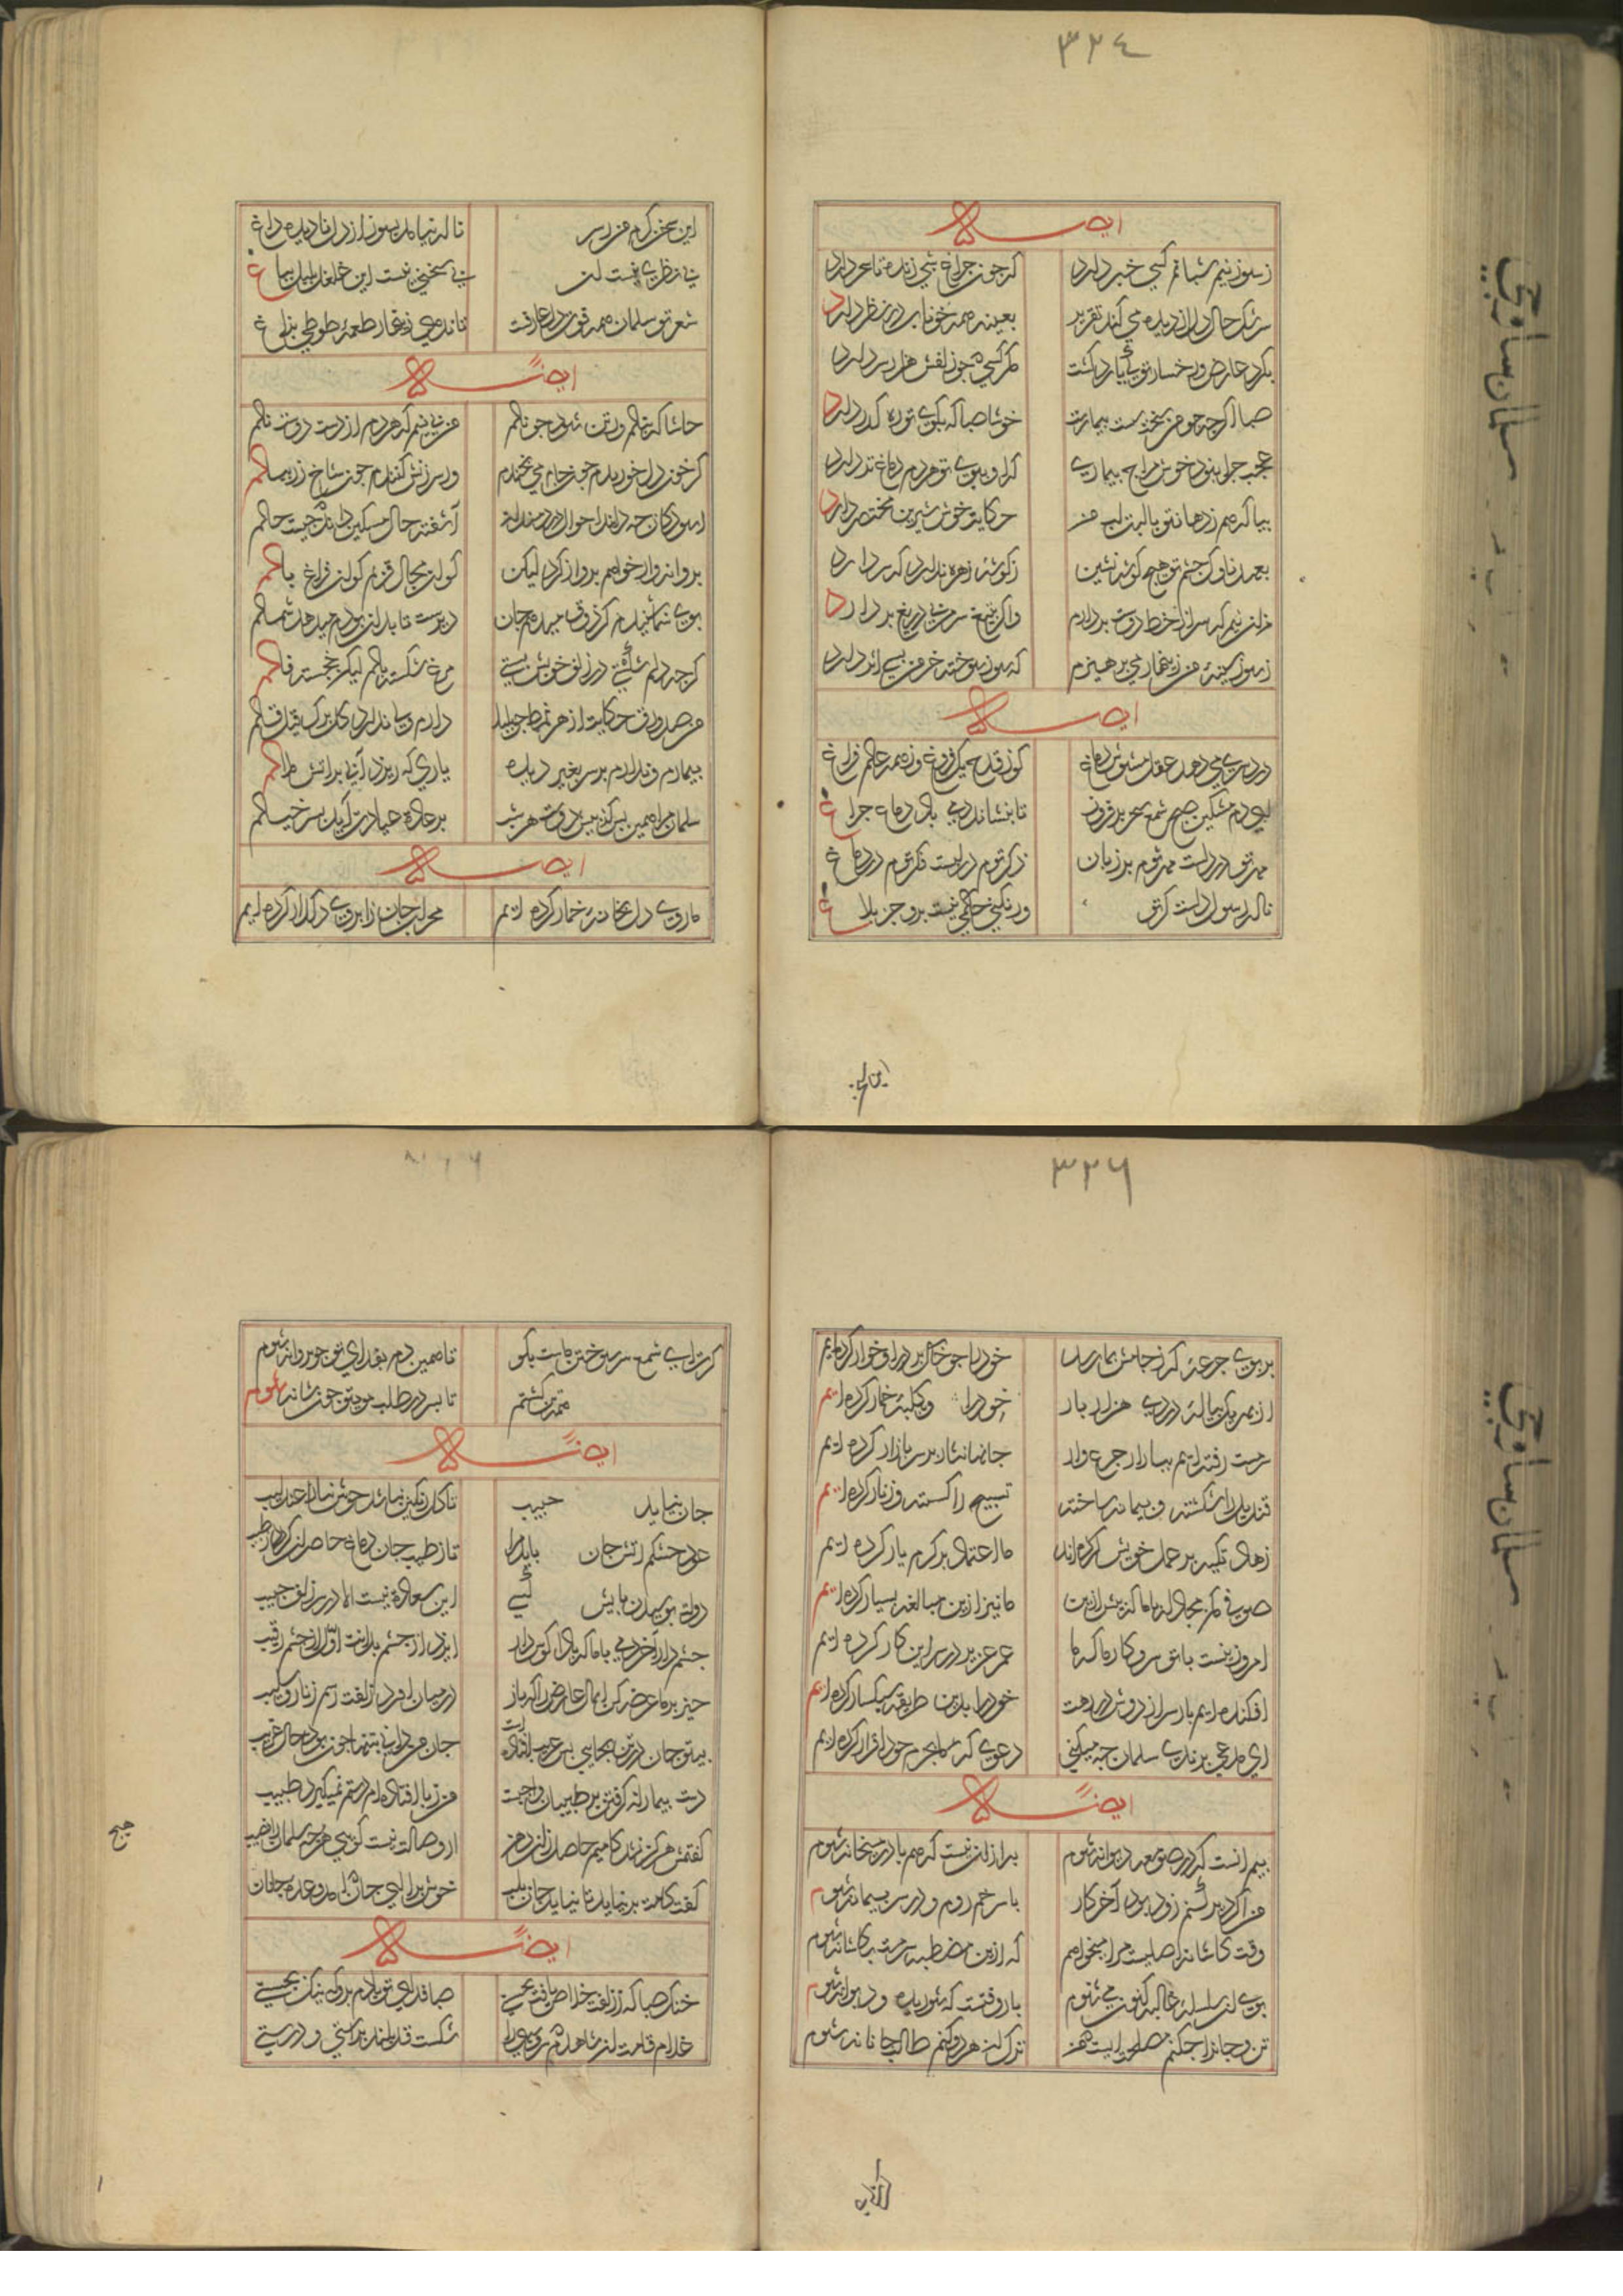 ٣٢٤
ايضا له
ز سوز نیم شبانم کسی خبر دارد
که چون چراغ شبی زنده تا سحر دارد
سرشک حال دل از دیده می کند تقریر
بعینه همه خونابه در نظر دارد
بگرد عارض و رخسار تو کسی یارد گشت
مگر کسی چو زلفش هزار سر دارد
صبا اگر چه چو من سخت سست بیمارست
خوشا صبا که بکوی تو ره گذر دارد
عجب چرا بنود خوش مزاج بیماری
که او ببوی تو هر دم دماغ تر دارد
بیا که هم ز دهان تو با لب من
حکایت خوش شیرین مختصر دارد
بعهد ناوک چشم تو هیچ گوشه نشین
ز گوشه زهره ندارد که سر دارد
من آن نیم که سر از خط دوست بر دارم
و اگر بتیغ سر من دریغ بر دارد
ز سوز سینه من زینهار می پرهیزم
که سوز سوخته خرمن بسی اثر دارد
ايضا له
درد سری می دهد عقل مشوش دماغ
کو ز قدح یک فروغ وز همه عالم فراغ
ای دم مشکین صبح شمع سحر بر فروز
تا بنشاند دمی باد دماغ چراغ
مهر تو در دلست مهر توم بر زبان
ذکر توم در دلست فکر توم در دماغ
ناله رسول دلست گرش
ور نکنی حکمی نیست برو جز بلاغ
این سخن گرم من در سر
نا له نیاید بسوز از دل نا دیده داغ
بی نظری نیست این
بی سخنی نیست این غلغل بلبل بباغ
شعر تو سلمان همه قوت دل عارفست
تا ندهی زینهار طعمه طوطی بزاغ
ايضا له
حاشا که بنالم ور تن شود چو نالم
من نی نیم که هر دم از دست دوست نالم
گر خون دل خورندم چون جام می بخندم
ور سرزنش کنندم چون شاخ زر ببالم
آسودگان چه دانند احوال دردمندان
آشفته حال مسکین داند که چیست حالم
پروانه وار خواهم پرواز کرد لیکن
کو آن مجال قربم کو آن فراغ بالم
بوی شما شنیدم کز ذوق میدهم جان
دیرست تا بدان بو دم میدهد شمالم
گر چه دلم شکستی در زلف خویش بستی
مرغ شکسته بالم لیکن خجسته فالم
من صد ورق حکایت از هر نمط چو بلبل
دارم ولی ندارد گل برگ قیل و قالم
بیمارم و ندارم بر سر بغیر دیده
یاری که ریزد آبی بر آتش ملالم
سلمان مرا همین بس کز پیش دوست هر شب
بر عاده عیادت آید بسر خیالم
ايضا له
ما روی دل بخانه خمار کرده ایم
محراب جان ز ابروی دلدار کرده ایم
این سخن
٣٢٦
بر بوی جرعه که ز جامش بما رسد
خود را چو خاک بر در او خوار کرده ایم
از بهر یک پیاله دردی هزار بار
خود را گرو بکلبه خمار کرده ایم
سرمست رفته ایم ببازار جرعه وار
جانها نثار بر سر بازار کرده ایم
قندیل را شکسته و پیمانه ساخته
تسبیح را گسسته و زنار کرده ایم
زهاد تکیه بر عمل خویش کرده اند
ما اعتماد بر کرم یار کرده ایم
صوفی مکن مجادله با ما که پیش ازین
ما نیز ازین مبالغه بسیار کرده ایم
امروز نیست با تو سر و کار ما که ما
عمر عزیز در سر این کار کرده ایم
افکنده ایم بار سر از دوش در رهت
خود را بدین طریقه سبکسار کرده ایم
ای مدعی بر ندی سلمان چه میکنی
دعوی که ما بجرم خود اقرار کرده ایم
ايضا له
بیم آنست که در صومعه دیوانه شوم
به از آن نیست که هم با در میخانه شوم
من اگر دیر شدم زود بود آخر کار
با سر خم روم و در سر پیمانه شوم
وقت کاشانه اصلیست مرا میخواهم
که ازین مضطبه سرمست بکاشانه شوم
بوی آن سلسله غالیه گون می شنوم
باز وقتست که شوریده و دیوانه شوم
تن و جان را چکنم مصلحت اینست که من
ترک آن هر دو کنم طالب جانانه شوم
گرت ای شمع سر سوختن ماست بگو
تا همین دم بفدای تو چو پروانه شوم
تا بسر در طلب موی تو چون شانه شوم
ايضا له
جان نیاید حبیب
تا گل رنگین نباشد خوش ننالد عندلیب
عود خشکم آتش جان باید مرا
تا ز طیب جان دماغ حاضران گردد رطیب
دولت بوسیدن پایش کسی
این سعادت نیست الا در سر زلف حبیب
چشم دار آخر دمی با ما که بادا گوش دار
ایزد از چشم بدانت اول از چشم رقیب
خیز بر ما عرضه کن ایمان عارض را که باز
در میان آورد زلفت رسم زنار و صلیب
بیتو جان در تن بجایی بس غریب افتاده است
جان من دانی به تنها چون بود حال غریب
دست بیماران گرفتن بر طبیبان واجبست
من ز پا افتاده ام دستم نمیگیرد طبیب
گفتمش هرگز نشد کامیم حاصل زان دهن
از وصالت نیست گویی هر چه سلمان را نصیب
گفت کامت بر نیاید تا نیاید جان بلب
خوش برآ ای جان که آمد وعده سلمان
ايضا له
خنک صبا که ز زلفت خلاص یافت بجستی
صبا فدای تو بادم برو که نیک بجستی
غلام قامت آن شاهدم
شکست قد بلند براستی و درستی
هیچ
سلمان ساوجی
سلمان ساوجی